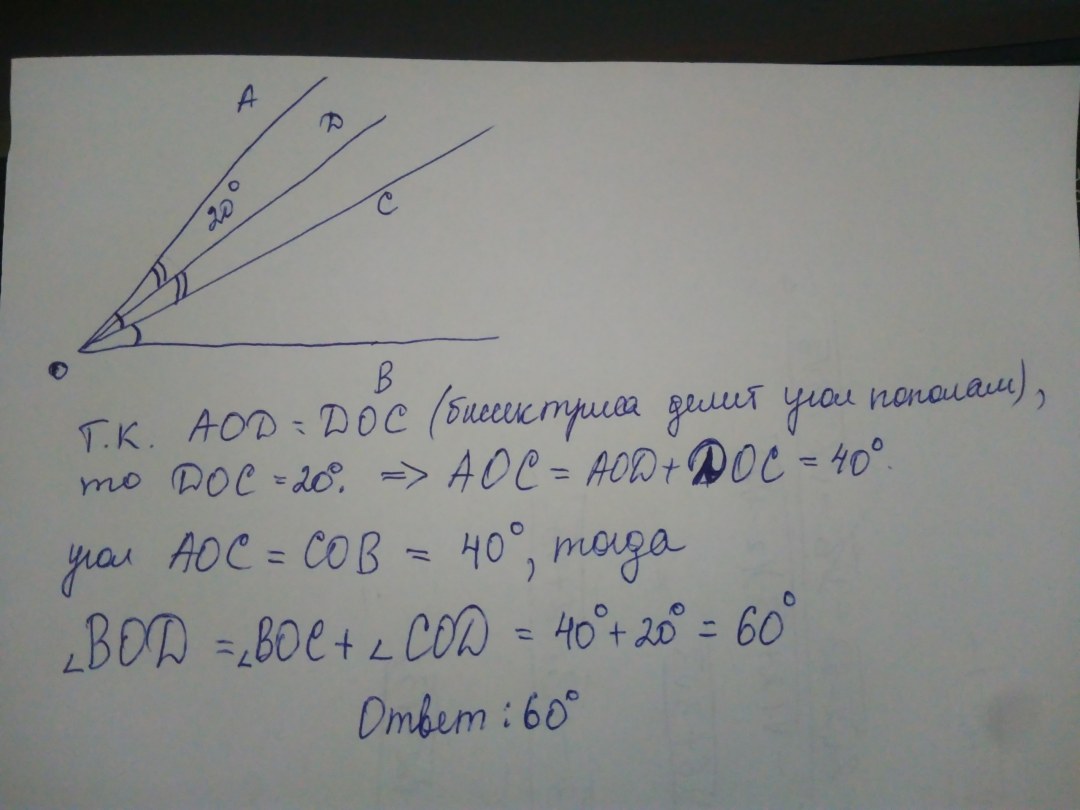 A
D
20°
C
O
B
Т.К. AOD = DOC (биссектриса делит угол пополам),
то DOC = 20°. => AOC = AOD + DOC = 40°.
угол AOC = COB = 40°, тогда
∠BOD = ∠BOC + ∠COD = 40° + 20° = 60°
Ответ: 60°